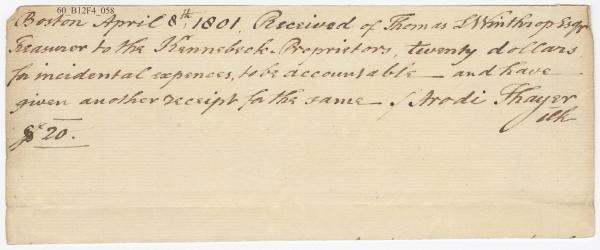 60_B12F4_058
Boston April 8th 1801. Received of Thomas L Winthrop Esqr
Treasuror to the Kennebeck Proprietors, twenty dollars
for incidental expences, to be accountable — and have
given another receipt for the same — / Arodi Thayer
$ 20.